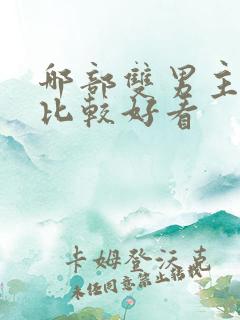 那部雙男主
比較好看
卡姆登沃克
未经同意禁止转载